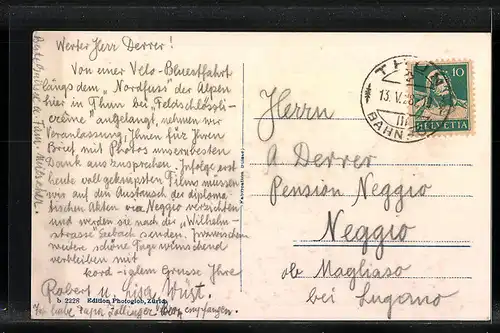 Werter Herr Derrer!
Von einer Velo-Bluestfahrt
längs dem "Nordfuss" der Alpen
hier in Thun bei "Feldschlössli-
crème" angelangt, nehmen wir
Veranlassung, Ihnen für Ihren
Brief mit Photos unsern besten
Dank auszusprechen. Infolge erst
heute voll geknipsten Films müssen
wir auf den Austausch der diploma-
tischen Akten via Neggio verzichten
und werden sie nach der "Wilhelm-
strasse" Seebach senden. Inzwischen
weitere schöne Tage wünschend
verbleiben mit
kord-ialem Grusse Ihre
Robert u. Lisa Wüst.
b 2228 Edition Photoglob, Zürich
empfangen.
Herrn
A Derrer
Pension Neggio
Neggio
ob Magliaso
bei Lugano
THUN
13.V.28
BAHN
10
HELVETIA